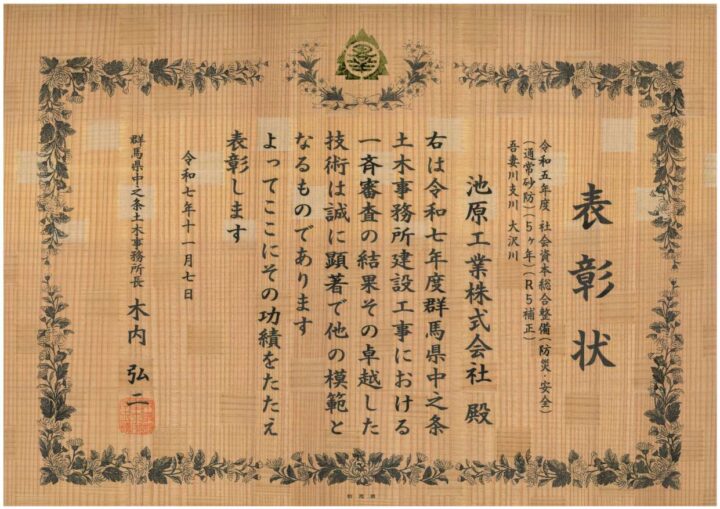 表彰状
令和五年度 社会資本総合整備(防災・安全)
(通常砂防)(5ヶ年)(R5補正)
吾妻川支川 大沢川
池原工業株式会社 殿
右は令和七年度群馬県中之条
土木事務所建設工事における
一斉審査の結果その卓越した
技術は誠に顕著で他の模範と
なるものであります
よってここにその功績をたたえ
表彰します
令和七年十一月七日
群馬県中之条土木事務所長 木内 弘二